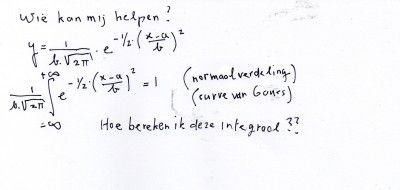 Wie kan mij helpen?
y = 1/(b.√2π) . e^(-1/2.((x-a)/b)^2)
1/(b.√2π) ∫_{-∞}^{+∞} e^(-1/2.((x-a)/b)^2) = 1 (normaalverdeling)
(curve van Gauss)
Hoe bereken ik deze integraal??